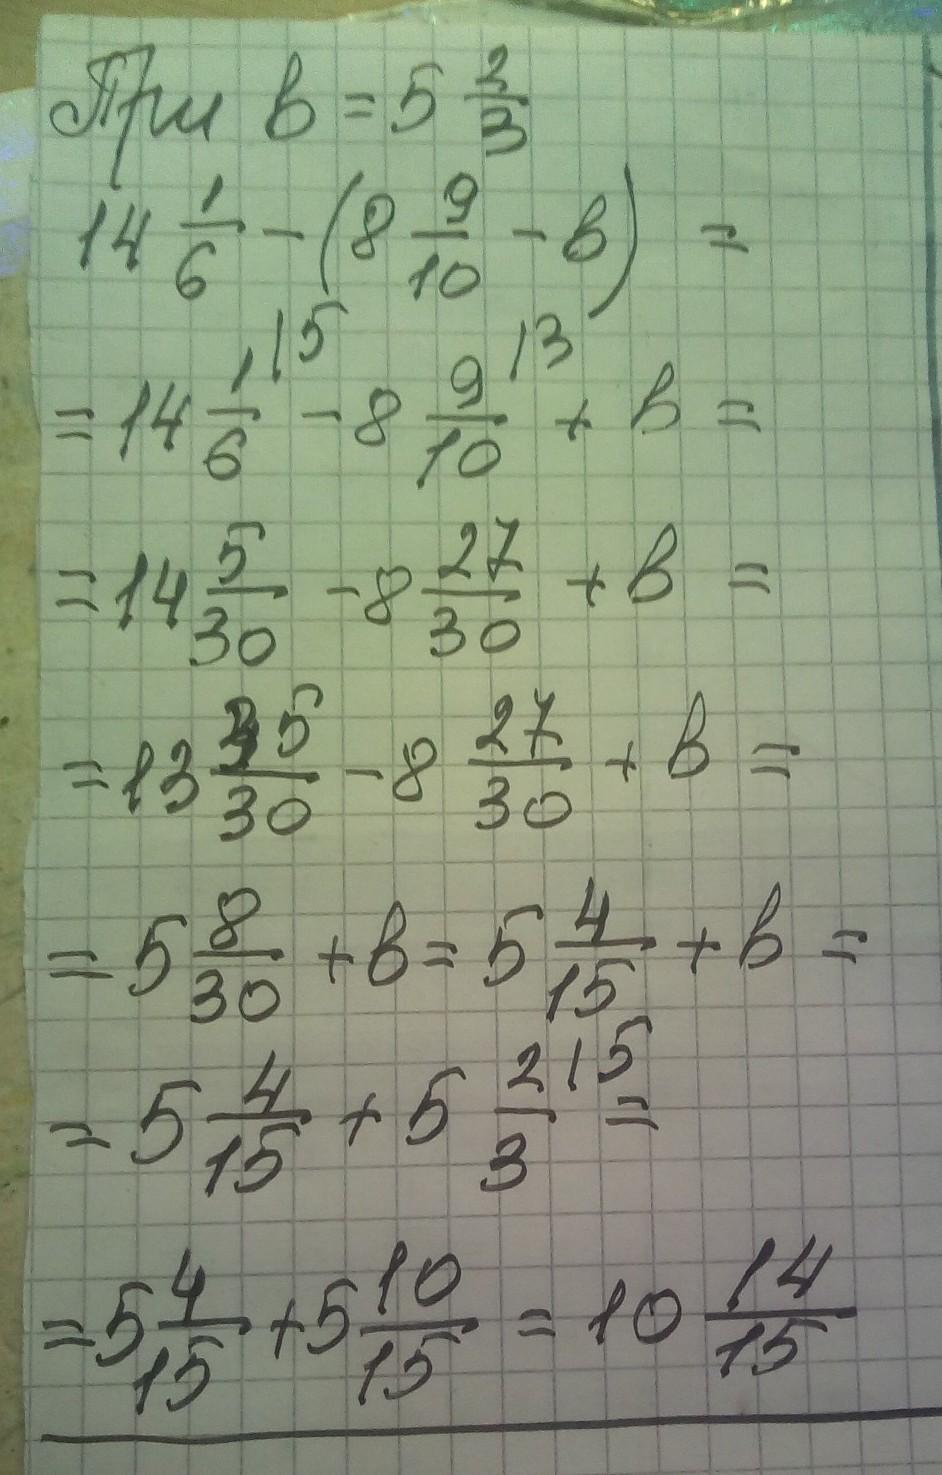 При в = 5 2/3
14 1/6 - (8 9/10 - в) =
= 14 1/6 |5 - 8 9/10 |3 + в =
= 14 5/30 - 8 27/30 + в =
= 13 35/30 - 8 27/30 + в =
= 5 8/30 + в = 5 4/15 + в =
= 5 4/15 + 5 2/3 |5 =
= 5 4/15 + 5 10/15 = 10 14/15